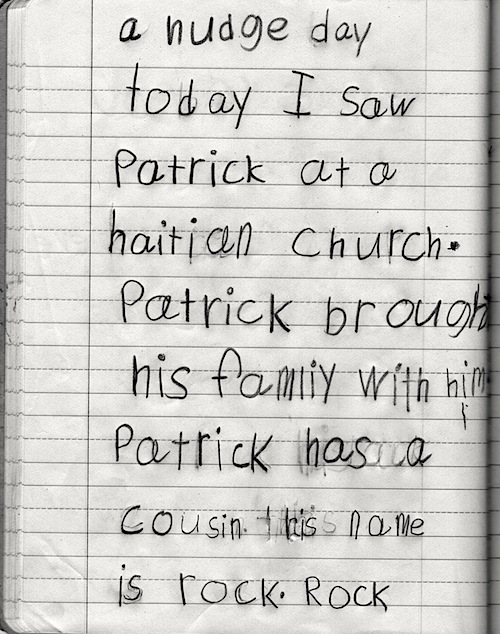 a nudge day
today I saw
Patrick at a
haitian church.
Patrick brought
his famliy with him
Patrick has a
cousin. his name
is rock. Rock